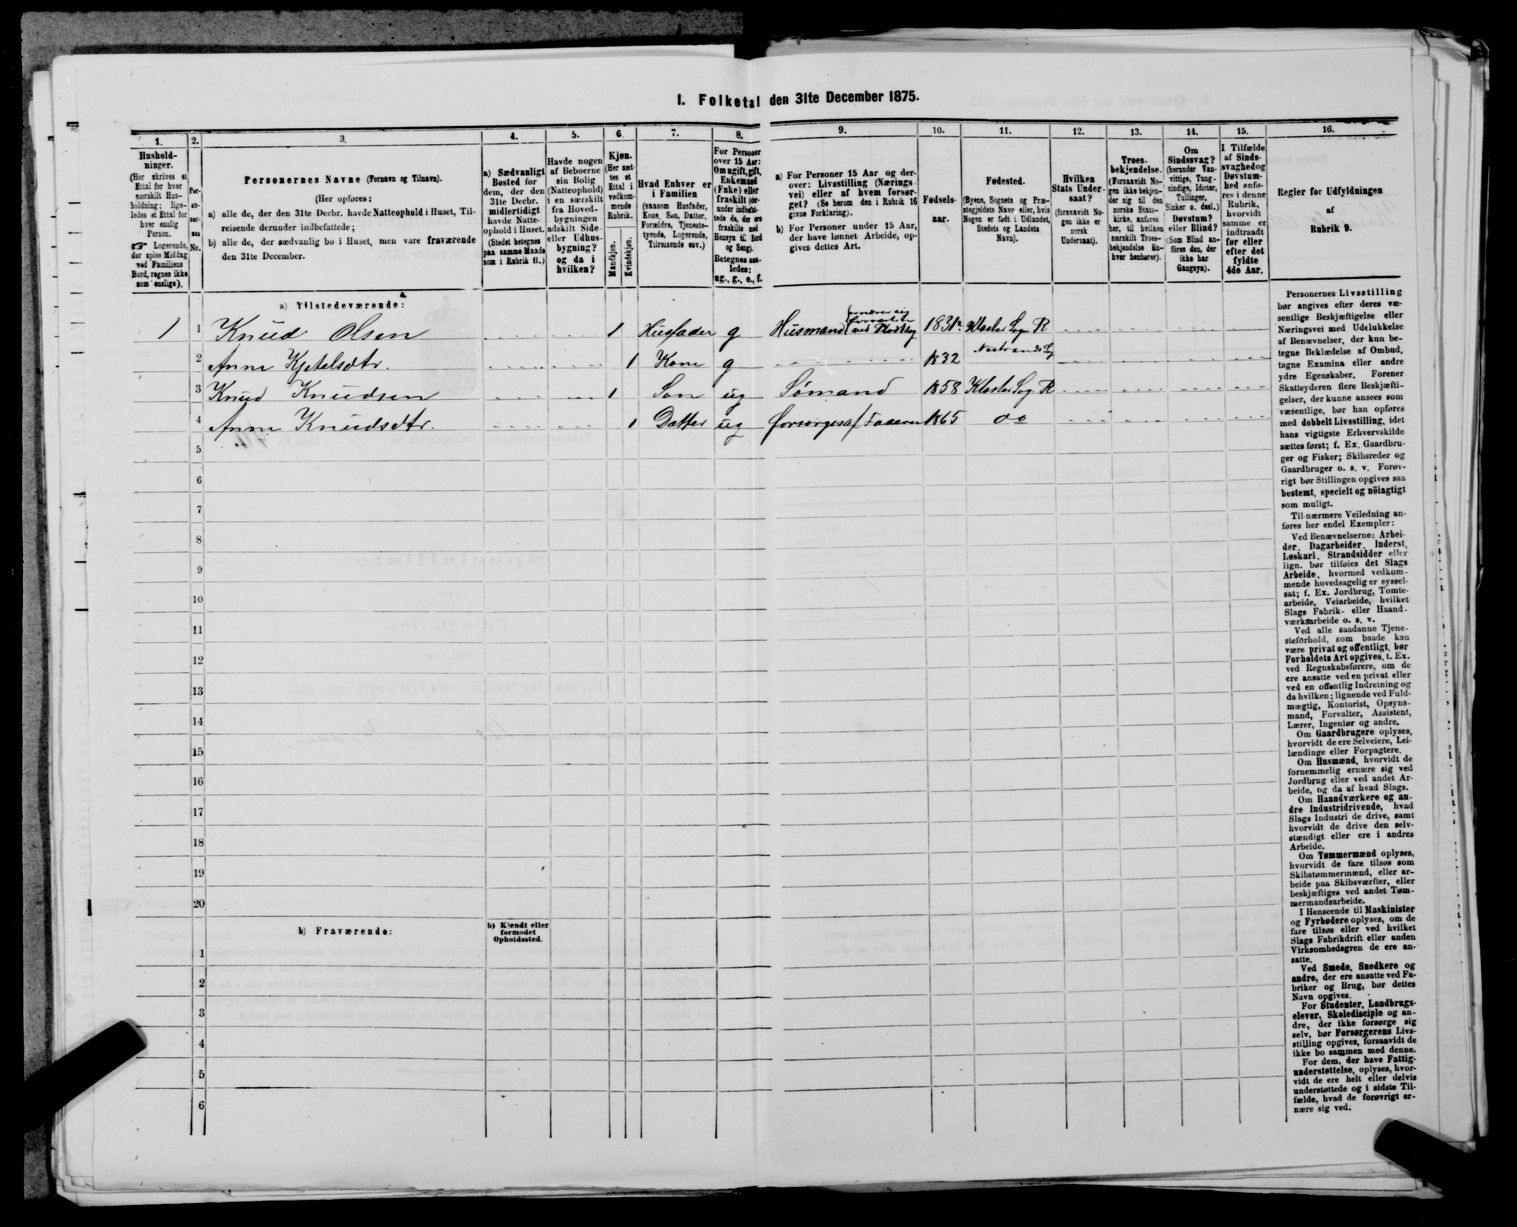 I. Folketal den 31te December 1875.
1.
2.
3.
4.
5.
6.
7.
8.
9.
10.
11.
12.
13.
14.
15.
16.
Husholdninger.
(Her skrives et
Ettal for hver
særskilt Husholdning; ligeledes
et Ettal for
hver enslig
Person.
☞ Logerende,
der spise Middag
ved Familiens
Bord, regnes ikke
som enslige).
Personernes No.
Personernes Navne (Fornavn og Tilnavn).
(Her opføres:
a) alle de, der den 31te Decbr. havde Natteophold i Huset, Tilreisende derunder indbefattede;
b) alle de, der sædvanlig bo i Huset, men vare fraværende
den 31te December.
a) Sædvanligt
Bosted for
dem, der den
31te Decbr.
midlertidigt
havde Natteophold i Huset.
(Stedet betegnes
paa samme Maade
som i Rubrik 11.)
Havde nogen
af Beboerne
sin Bolig
(Natteophold)
i en særskilt
fra Hovedbygningen
adskilt Side-
eller Udhusbygning?
og da i
hvilken?
Kjøn.
(Her sættes et
Ettal i
vedkommende
Rubrik.
Mandkjøn.
Kvindekjøn.
Hvad Enhver er
i Familien
(saasom Husfader,
Kone, Søn, Datter,
Forældre, Tjenestetyende, Logerende,
Tilreisende osv.)
For Personer
over 15 Aar:
Om ugift, gift,
Enkemand
(Enke) eller
fraskilt (derunder indbefattede de, der ere
fraskilte med
Hensyn til Bord
og Seng).
Betegnes saaledes:
ug., g., e., f.
a) For Personer 15 Aar og derover: Livsstilling (Næringsvei) eller af hvem forsørget? (Se herom den i Rubrik 16
givne Forklaring).
b) For Personer under 15 Aar,
der have lønnet Arbeide, opgives dettes Art.
Fødselsaar.
Fødested.
(Byens, Sognets og Præstegjeldets Navn eller, hvis
Nogen er født i Udlandet,
Stedets og Landets
Navn).
Hvilken
Stats Undersaat?
(forsaavidt Nogen ikke er
norsk
Undersaat).
Troesbekjendelse.
(Forsaavidt Nogen ikke bekjender sig til den
norske Statskirke, anføres
her, til hvilken
særskilt Troesbekjendelse Enhver henhører).
Om
Sindssvag?
(herunder Vanvittige, Tungsindige, Idioter,
Tullinger,
Sinker o. desl.)
Døvstum?
eller Blind?
(Som Blind anføres den, der
ikke har
Gangsyn).
I Tilfælde
af Sindssvaghed og
Døvstumhed anføres i denne
Rubrik,
hvorvidt
samme er
indtraadt
før eller
efter det
fyldte
4de Aar.
Regler for Udfyldningen
af
Rubrik 9.
a) Tilstedeværende:
1 1 Knud Olsen 1 Husfader g Husmand 1831 Kloster Sogn R
2 Anne Kjetelsdtr. 1 Kone g 1832
3 Knud Knudsen 1 Søn ug Sømand 1858 Kloster Sog R
4 Anne Knudsdtr. 1 Datter ug forsørges af Faderen 1865 do
5
6
7
8
9
10
11
12
13
14
15
16
17
18
19
20
b) Fraværende:
b) Kjendt eller
formodet
Opholdssted.
1
2
3
4
5
6
Personernes Livsstilling
bør angives efter deres væsentlige Beskjæftigelse eller
Næringsvei med Udelukkelse
af Benævnelser, der kun betegne Beklædelse af Ombud,
tagne Examina eller andre
ydre Egenskaber. Forener
Skatteyderen flere Beskjæftigelser, der kunne ansees som
væsentlige, bør han opføres
med dobbelt Livsstilling, idet
hans vigtigste Erhvervskilde
sættes først; f. Ex. Gaardbruger og Fisker; Skibsreder og
Gaardbruger o. s. v. Forøvrigt bør Stillingen opgives saa
bestemt, specielt og nöiagtigt
som muligt.
Til nærmere Veiledning anføres her endel Exempler:
Ved Benævnelserne: Arbeider, Dagarbeider, Inderst,
Løskarl, Strandsidder eller
lign. bør tilføies det Slags
Arbeide, hvormed vedkommende hovedsagelig er sysselsat; f. Ex. Jordbrug, Tomtearbeide, Veiarbeide, hvilket
Slags Fabrik- eller Haandværksarbeide o. s. v.
Ved alle saadanne Tjenesteforhold, som baade kan
være privat og offentligt, bør
Forholdets Art opgives, t. Ex.
ved Regnskabsførere, om de
ere ansatte ved en privat eller
ved en offentlig Indretning og
da hvilken; lignende ved Fuldmægtig, Kontorist, Opsynsmand, Forvalter, Assistent,
Lærer, Ingeniør og andre.
Om Gaardbrugere oplyses,
hvorvidt de ere Selveiere, Leilændinge eller Forpagtere.
Om Husmænd, hvorvidt de
fornemmelig ernære sig ved
Jordbrug eller ved andet Arbeide, og da af hvad Slags.
Om Haandværkere og andre Industridrivende, hvad
Slags Industri de drive, samt
hvorvidt de drive den selvstændigt eller ere i andres
Arbeide.
Om Tømmermænd oplyses,
hvorvidt de fare tilsøs som
Skibstømmermænd, eller arbeide paa Skibsværfter, eller
beskjæftiges ved andet Tømmermandsarbeide.
I Henseende til Maskinister
og Fyrbødere oplyses, om de
fare tilsøs eller ved hvilket
Slags Fabrikdrift eller anden
Virksomhedsgren de ere ansatte.
Ved Smede, Snedkere og
andre, der ere ansatte ved Fabriker og Brug, bør dettes
Navn opgives.
For Studenter, Landbrugselever, Skoledisciple og andre, der ikke forsørge sig
selv, bør Forsørgerens Livsstilling opgives, forsaavidt de
ikke bo sammen med denne.
For dem, der have Fattigunderstøttelse, oplyses, hvorvidt de ere helt eller delvis
understøttede og i sidste Tilfælde, hvad de forøvrigt ernære sig ved.